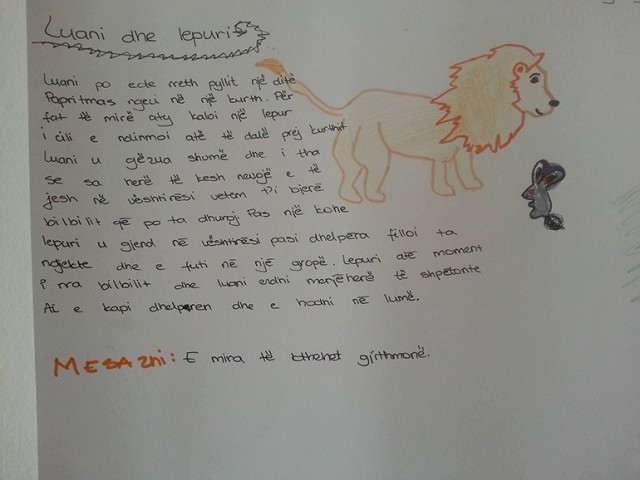 Luani dhe lepuri
Luani po ecte rreth pyllit një ditë
Papritmas ngeci në një kurth. Për
fat të mirë aty kaloi një lepur
i cili e ndihmoi atë të dalë prej kurthit
Luani u gëzua shumë dhe i tha
se sa herë të kesh nevojë e të
jesh në vështirësi vetem t'i bjerë
bilbilit që po ta dhuroj. Pas një kohe
lepuri u gjend në vështirësi pasi dhelpera filloi ta
ndjekte dhe e futi në një gropë. Lepuri atë moment
i rra bilbilit dhe luani erdhi menjëherë të shpëtonte
Ai e kapi dhelperen dhe e hodhi në lumë.
MESAZhi: E mira të kthehet gjithmonë.